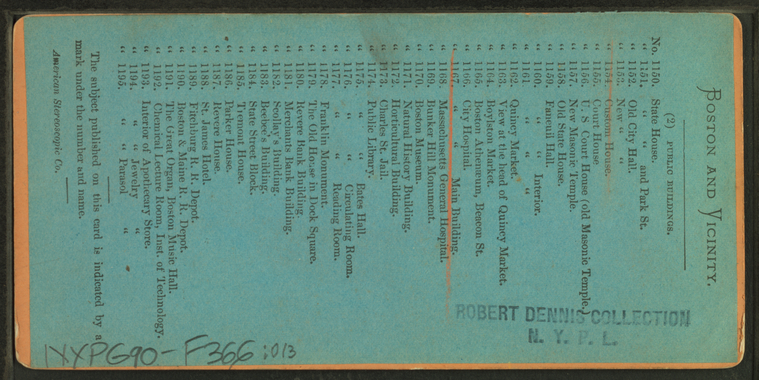 BOSTON AND VICINITY.
(2) PUBLIC BUILDINGS.
No. 1150. State House.
" 1151. " " and Park St.
" 1152. Old City Hall.
" 1153. New " "
" 1154. Custom House.
" 1155. Court House
" 1156. U. S Court House (old Masonic Temple.)
" 1157. New Masonic Temple.
" 1158. Old State House.
" 1159. Faneuil Hall.
" 1160. " " Interior.
" 1161. " "
" 1162. Quincy Market.
" 1163. View at the head of Quincy Market.
" 1164. Boylston Market.
" 1165. Boston Athenæum, Beacon St.
" 1166. City Hospital.
" 1167. " " Main Building.
" 1168. Massachusetts General Hospital.
" 1169. Bunker Hill Monument.
" 1170. Boston Museum.
" 1171. Natural History Building.
" 1172. Horticultural Building.
" 1173. Charles St. Jail.
" 1174. Public Library.
" 1175. " " Bates Hall.
" 1176. " " Circulating Room.
" 1177. " " Reading Room.
" 1178. Franklin Monument.
" 1179. The Old House in Dock Square.
" 1180. Revere Bank Building.
" 1181. Merchants Bank Building.
" 1182. Scollay's Building.
" 1183. Beebee's Building.
" 1184. State Street Block.
" 1185. Tremont House.
" 1186. Parker House.
" 1187. Revere House.
" 1188. St. James Hotel.
" 1189. Fitchburg R. R. Depot.
" 1190. Boston & Maine R. R. Depot.
" 1191. The Great Organ, Boston Music Hall.
" 1192. Chemical Lecture Room, Inst. of Technology.
" 1193. Interior of Apothecary Store.
" 1194. " " Jewelry "
" 1195. " " Parasol "
The subject published on this card is indicated by a
mark under the number and name.
American Stereoscopic Co.
ROBERT DENNIS COLLECTION
N. Y. P. L.
NYPG90-F366:013